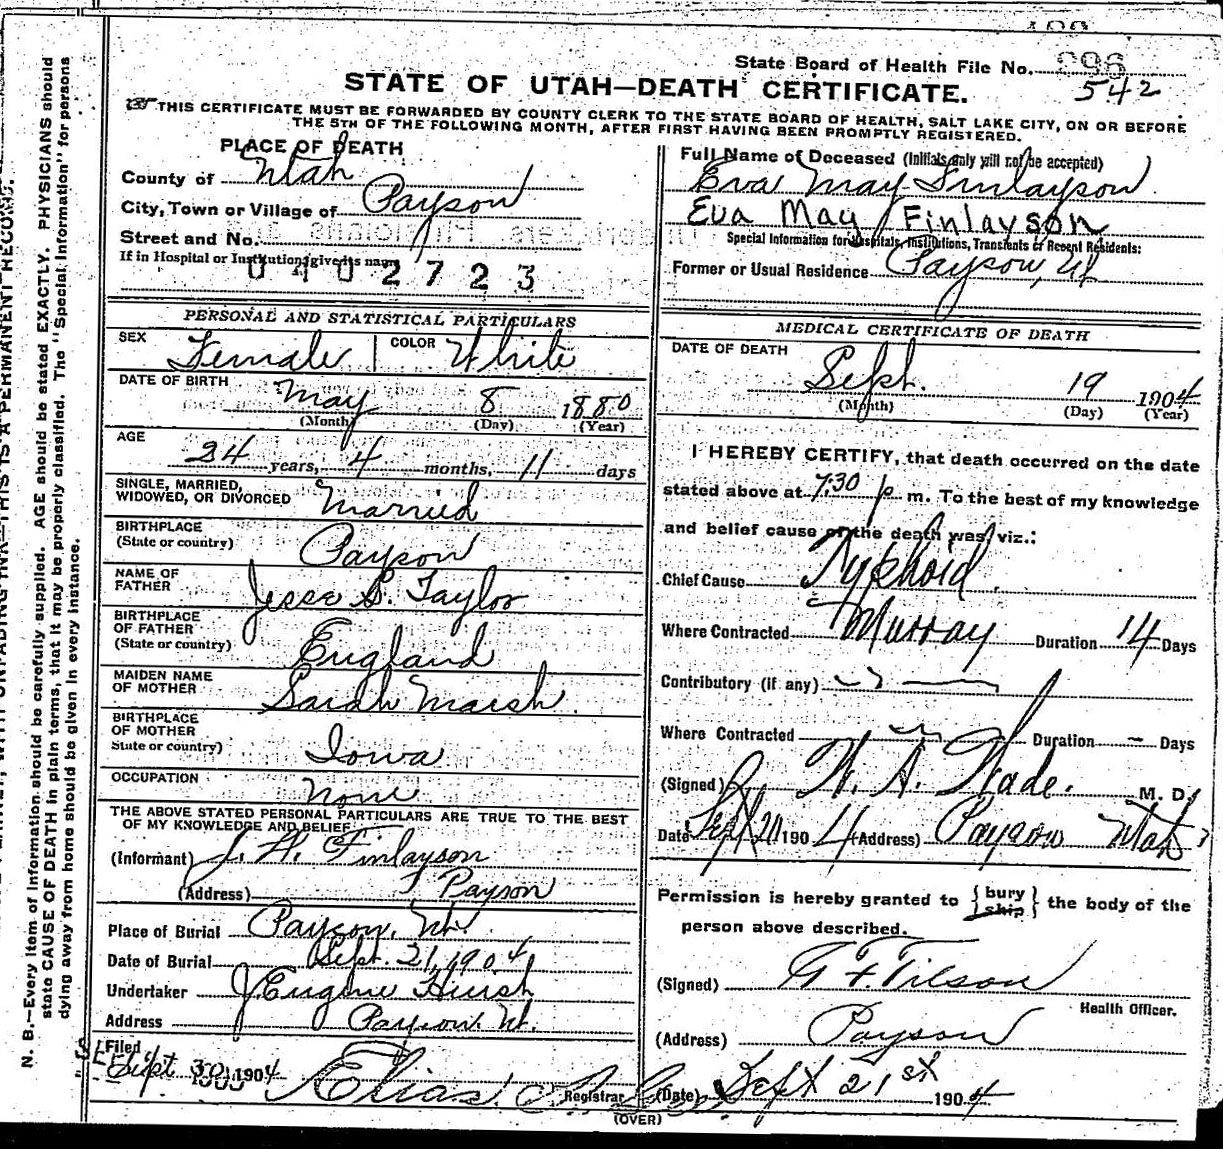 State Board of Health File No. 296
542
STATE OF UTAH—DEATH CERTIFICATE.
THIS CERTIFICATE MUST BE FORWARDED BY COUNTY CLERK TO THE STATE BOARD OF HEALTH, SALT LAKE CITY, ON OR BEFORE
THE 5TH OF THE FOLLOWING MONTH, AFTER FIRST HAVING BEEN PROMPTLY REGISTERED.
PLACE OF DEATH
County of Utah
City, Town or Village of Payson
Street and No.
If in Hospital or Institution, give its name
0402723
Full Name of Deceased (Initials only will not be accepted)
Eva May Finlayson
Eva May Finlayson
Special Information for Hospitals, Institutions, Transients or Recent Residents:
Former or Usual Residence Payson, Ut
PERSONAL AND STATISTICAL PARTICULARS
SEX Female COLOR White
DATE OF BIRTH
May 8 1880
(Month) (Day) (Year)
AGE
24 years, 4 months, 11 days
SINGLE, MARRIED,
WIDOWED, OR DIVORCED Married
BIRTHPLACE
(State or country) Payson
NAME OF
FATHER Jesse S. Taylor
BIRTHPLACE
OF FATHER
(State or country) England
MAIDEN NAME
OF MOTHER Sarah Marsh
BIRTHPLACE
OF MOTHER
State or country) Iowa
OCCUPATION none
THE ABOVE STATED PERSONAL PARTICULARS ARE TRUE TO THE BEST
OF MY KNOWLEDGE AND BELIEF
(Informant) J. H. Finlayson
(Address) Payson
Place of Burial Payson, Ut.
Date of Burial Sept. 21, 1904
Undertaker J. Eugene Huish
Address Payson Ut.
Filed
Sept 30 1904 Elias Registrar
MEDICAL CERTIFICATE OF DEATH
DATE OF DEATH
Sept. 19 1904
(Month) (Day) (Year)
I HEREBY CERTIFY, that death occurred on the date
stated above at 7:30 p. m. To the best of my knowledge
and belief cause of the death was, viz.:
Chief Cause Typhoid
Where Contracted Murray Duration 14 Days
Contributory (if any)
Where Contracted Duration — Days
(Signed) M. D.
Date Sept 20 1904 (Address) Payson Utah
Permission is hereby granted to { bury
ship } the body of the
person above described.
(Signed) Tilson
Health Officer.
(Address) Payson
(Date) Sept 21st 1904
(OVER)
N. B.—Every item of information should be carefully supplied. AGE should be stated EXACTLY. PHYSICIANS should
state CAUSE OF DEATH in plain terms, that it may be properly classified. The "Special Information" for persons
dying away from home should be given in every instance.